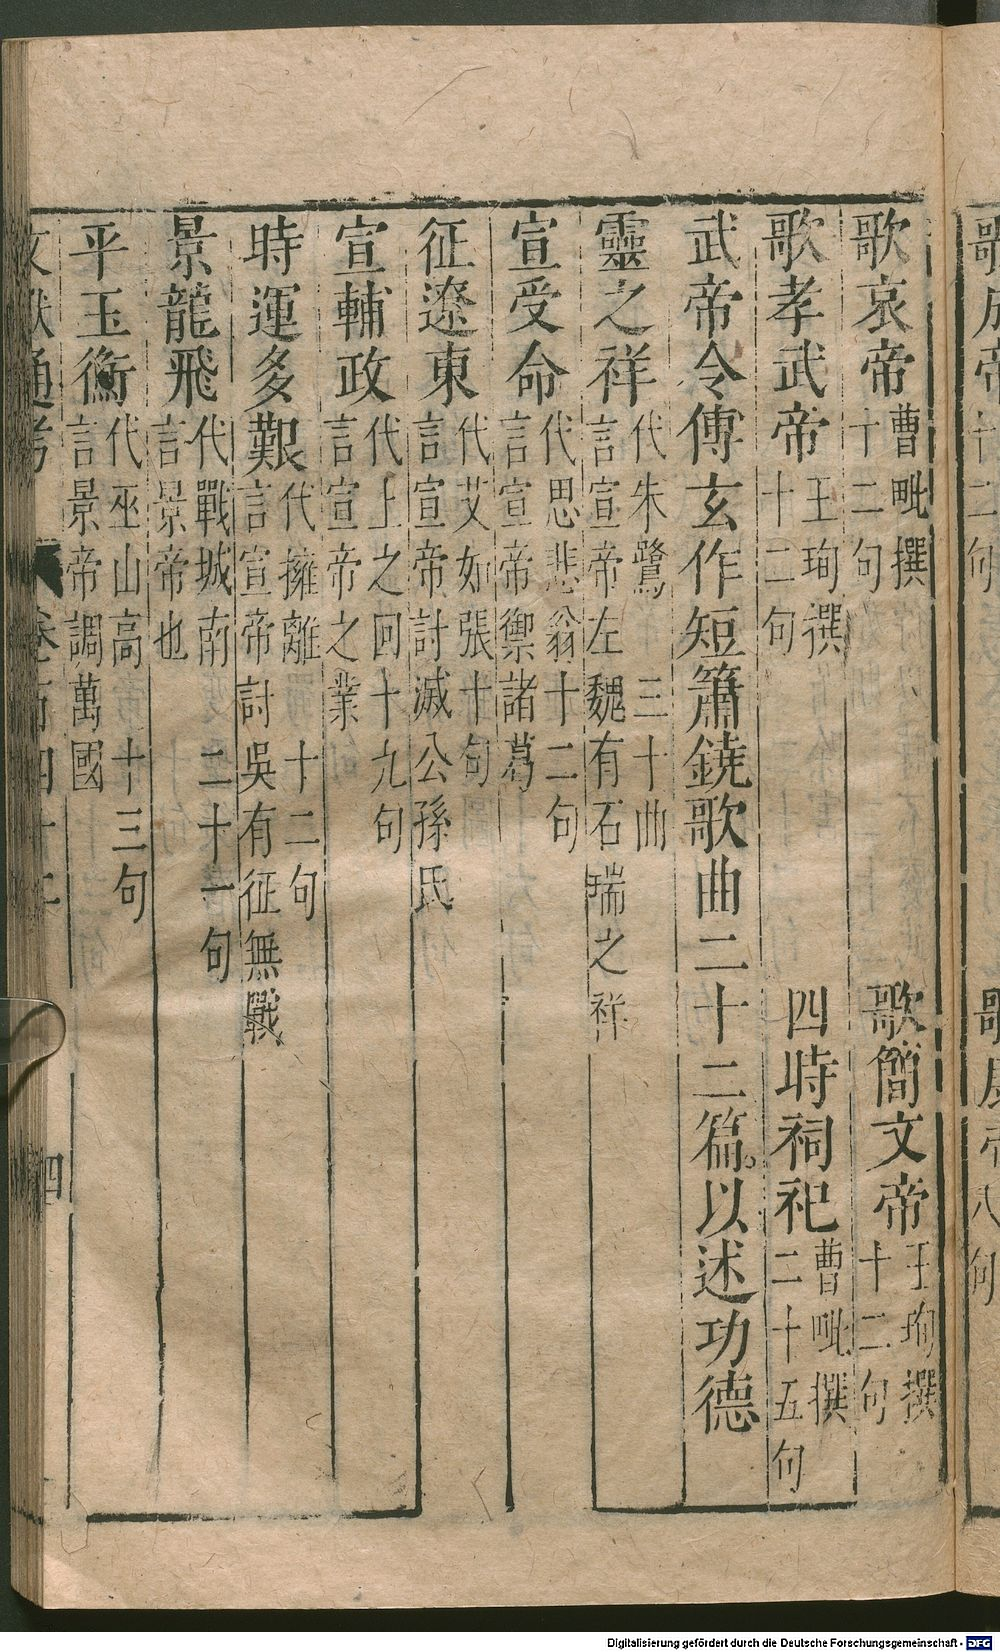 歌哀帝 曹毗撰十二句 歌簡文帝 王珣撰十二句
歌孝武帝 王珣撰十二句 四時祠祀 曹毗撰二十五句
武帝令傅玄作短簫鐃歌曲二十二篇以述功德
靈之祥 代朱鷺 三十曲言宣帝左魏有石瑞之祥
宣受命 代思悲翁十二句言宣帝禦諸葛
征遼東 代艾如張十句言宣帝討滅公孫氏
宣輔政 代上之回十九句言宣帝之業
時運多艱 代擁離 十二句言宣帝討吳有征無戰
景龍飛 代戰城南 二十一句言景帝也
平玉衡 代巫山高 十三句言景帝調萬國
文獻通考 卷一百四十二 四
Digitalisierung gefördert durch die Deutsche Forschungsgemeinschaft - DFG